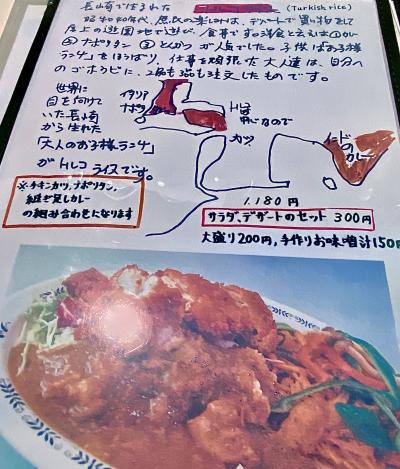 長崎で生まれた (Turkish rice)
昭和40年代、庶民の楽しみは、デパートで買い物をして
屋上の遊園地で遊び、食事です。洋食と云えば①カレー
②ナポリタン ③とんかつ が人気でした。子供はお子様
ランチをほうばり、仕事を頑張った大人達は、自分への
ゴホウビに、2品も3品も注文したものです。
世界に
目を向けて
いた長崎
から生れた
「大人のお子様ランチ」
がトルコライスです。
イタリア
ナポリタン
トルコは
中になので
カツ
インドの
カレー
※チキンカツ、ナポリタン、
継ぎ足しカレー
の組み合わせになります
1,180円
サラダ、デザートのセット 300円
大盛り200円,手作りお味噌汁150円